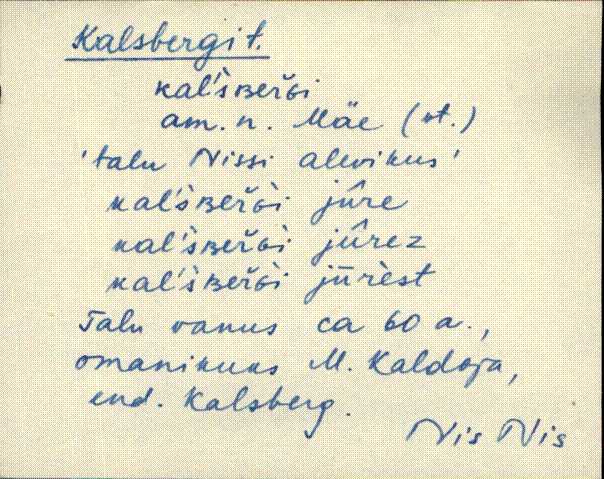 Kalsbergi t.
kal's̀ʙeřɢi
am. n. Mäe (vt.)
'talu Nissi alevikus'
kal's̀ʙeřɢi jûre
kal's̀ʙeřɢi jûrez
kal's̀ʙeřɢi jūrèst
Talu vanus ca 60 a.,
omanikuks M. Kaldoja,
end. Kalsberg.
Nis Nis